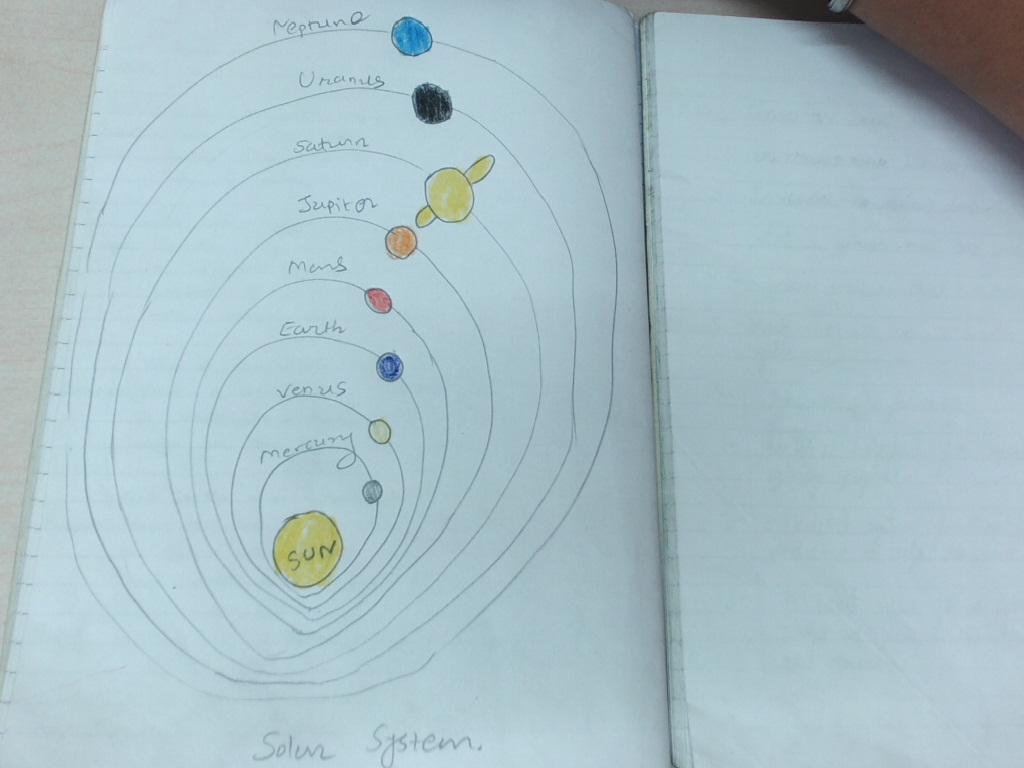 Neptune
Uranus
Saturn
Jupiter
Mars
Earth
Venus
Mercury
SUN
Solar System.